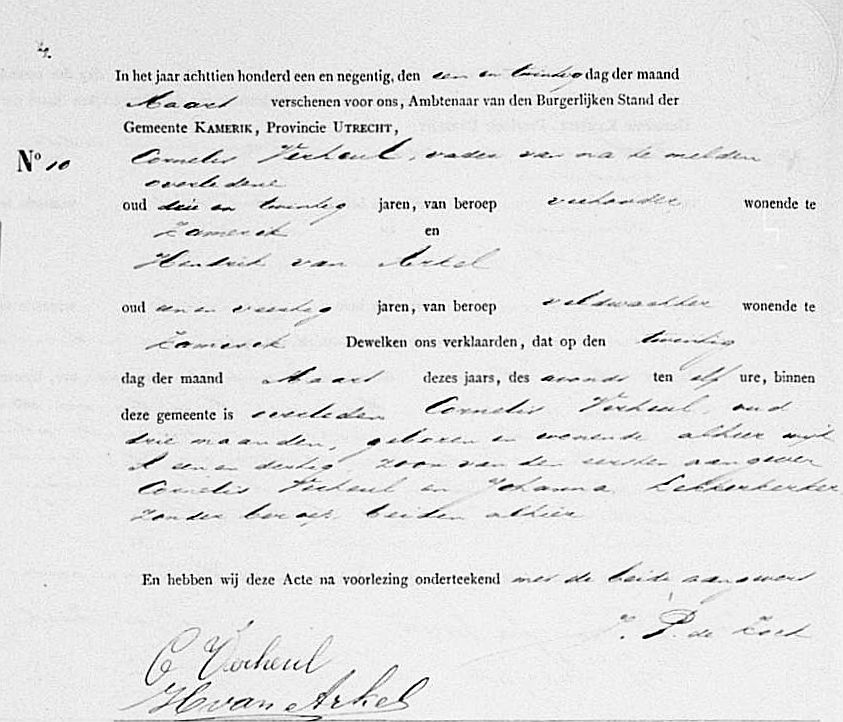 In het jaar achttien honderd een en negentig, den een en twintig dag der maand
Maart verschenen voor ons, Ambtenaar van den Burgerlijken Stand der
Gemeente KAMERIK, Provincie UTRECHT,
No 10 Cornelis Verheul, vader van na te melden
overledene
oud drie en twintig jaren, van beroep veehouder wonende te
Kamerik en
Hendrik van Arkel
oud een en veertig jaren, van beroep veldwachter wonende te
Kamerik Dewelken ons verklaarden, dat op den twintig
dag der maand Maart dezes jaars, des avonds ten elf ure, binnen
deze gemeente is overleden Cornelis Verheul, oud
drie maanden, geboren en wonende alhier wijk
A een en dertig, zoon van den eersten aangever
Cornelis Verheul en Johanna Lekkerkerker
zonder beroep beiden alhier
En hebben wij deze Acte na voorlezing onderteekend met de beide aangevers
J. P. de
C Verheul
H van Arkel